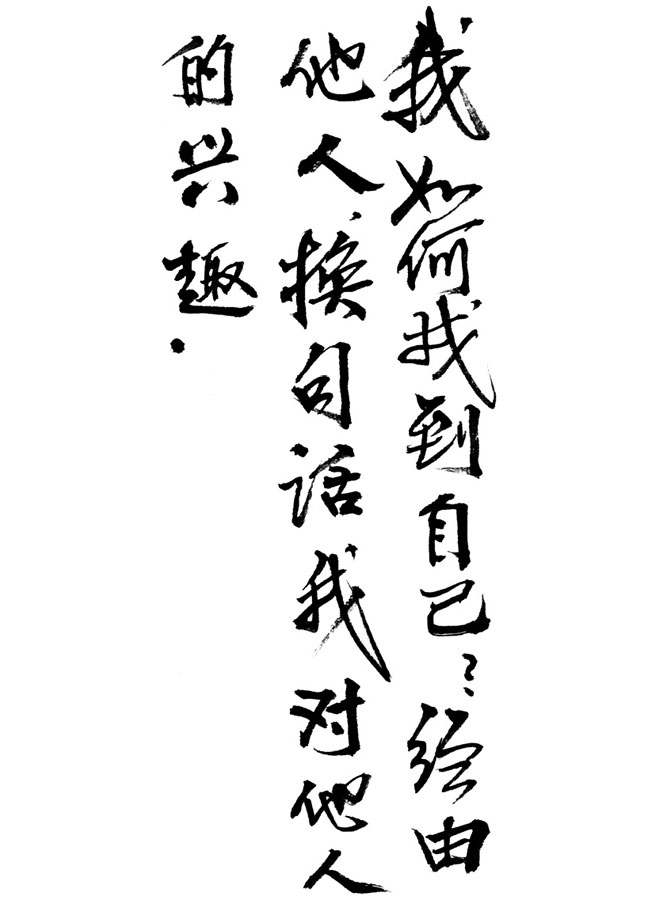 我如何找到自己？经由
他人，换句话我对他人
的兴趣.